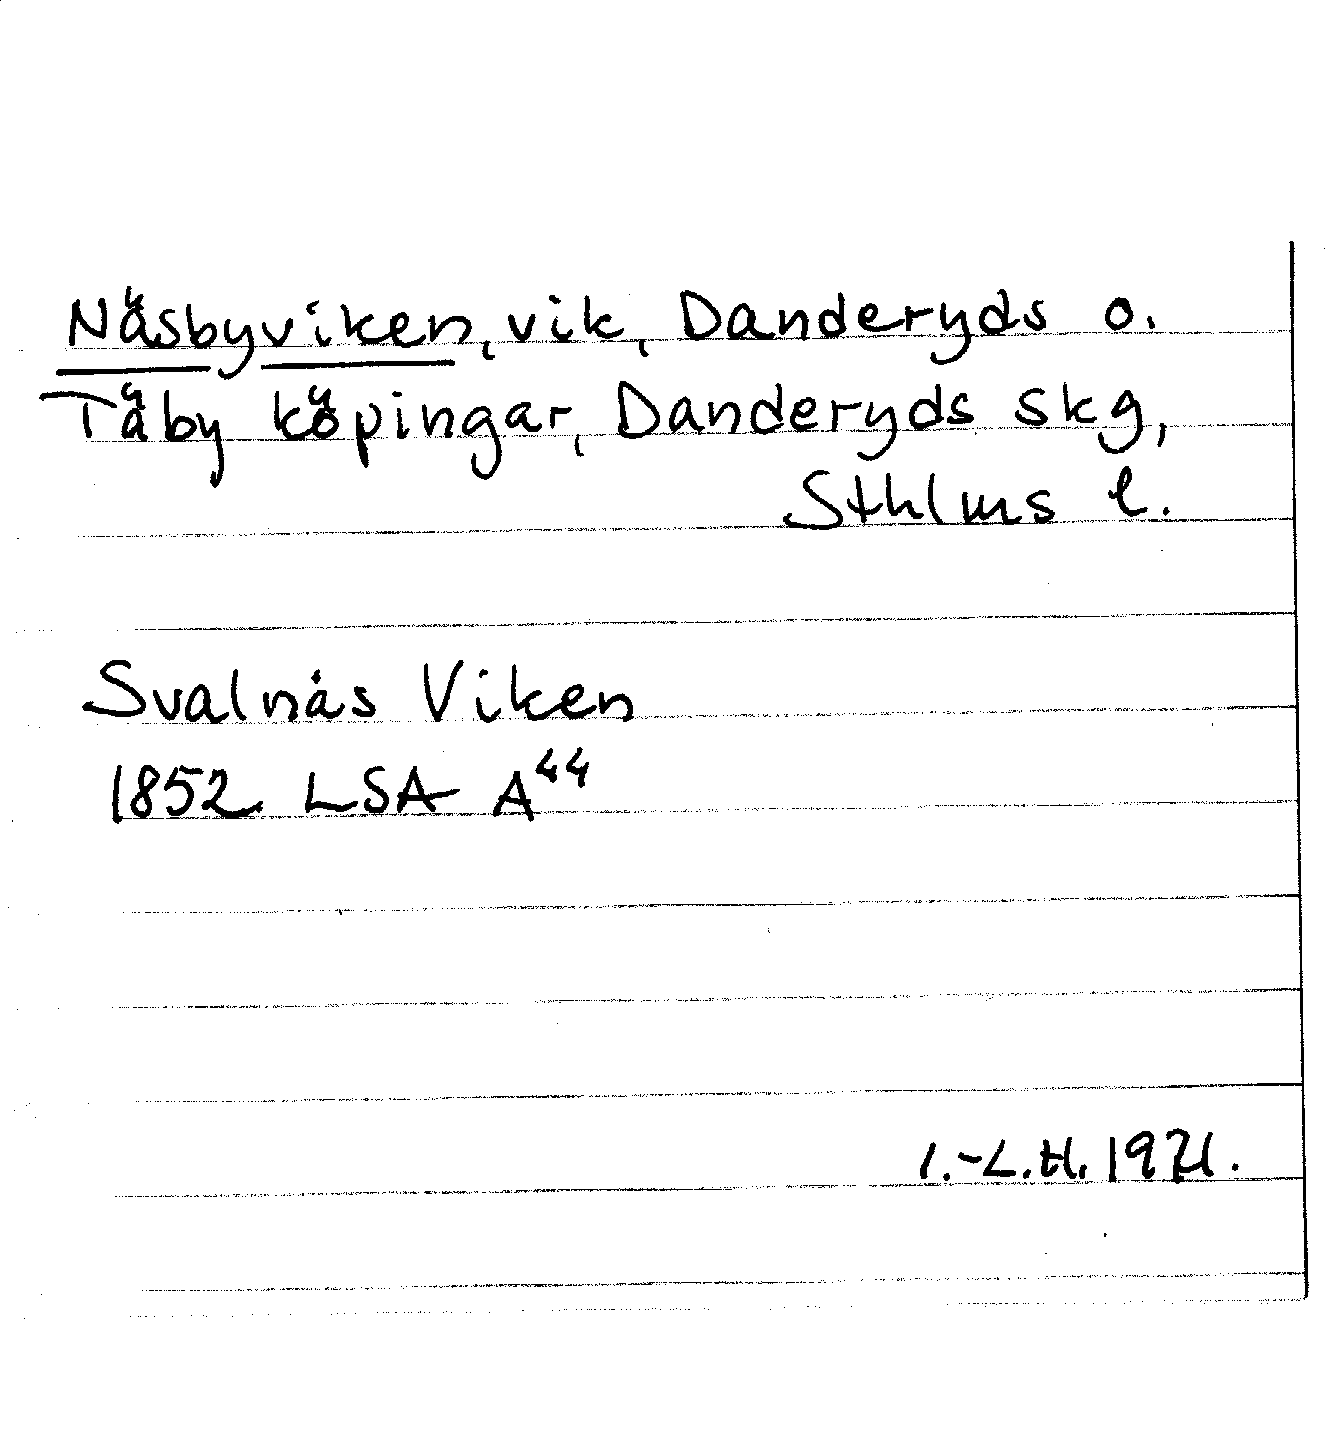 Näsbyviken, vik, Danderyds o.
Täby köpingar, Danderyds skg,
Sthlms l.
Svalnäs Viken
1852 LSA A44
I.-L.H. 1971.